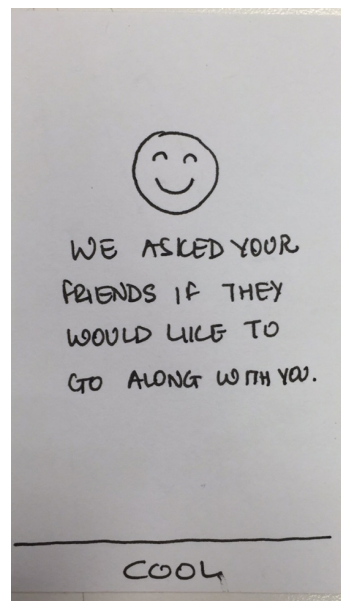 WE ASKED YOUR
FRIENDS IF THEY
WOULD LIKE TO
GO ALONG WITH YOU.
COOL